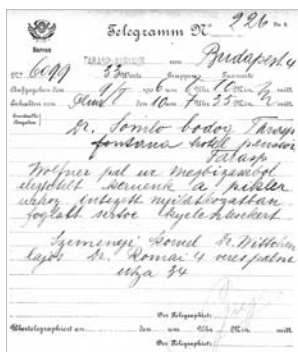 Telegramm Nº 226
Bureau
TARASP von Budapest 4
Nº 6099 33 Worte Gruppen Taxworte
Aufgegeben den 9/7 1906 um 6 Uhr 10 Min. mitt.
Erhalten von den 10 um 7 Uhr 35 Min. mitt.
Dr. Somlo bodog Tarasp
fontana hotel pension
Tarasp
Wolfner pal ur megbizasabol
elegtetelt kerunk a pikler
urhoz intezett nyilatkozatban
foglalt serto kijelentesekert
Szemenyei kornel Dr. Wittchen
lajos Dr. Romai 4 veres palne
utza 34
Der Telegraphist:
Übertelegraphiert an den um Uhr Min. mitt.
Der Telegraphist: